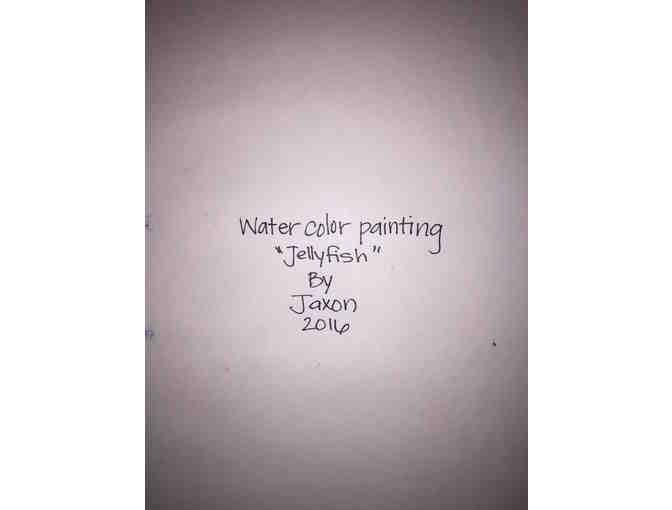 Water color painting
"Jellyfish"
By
Jaxon
2016